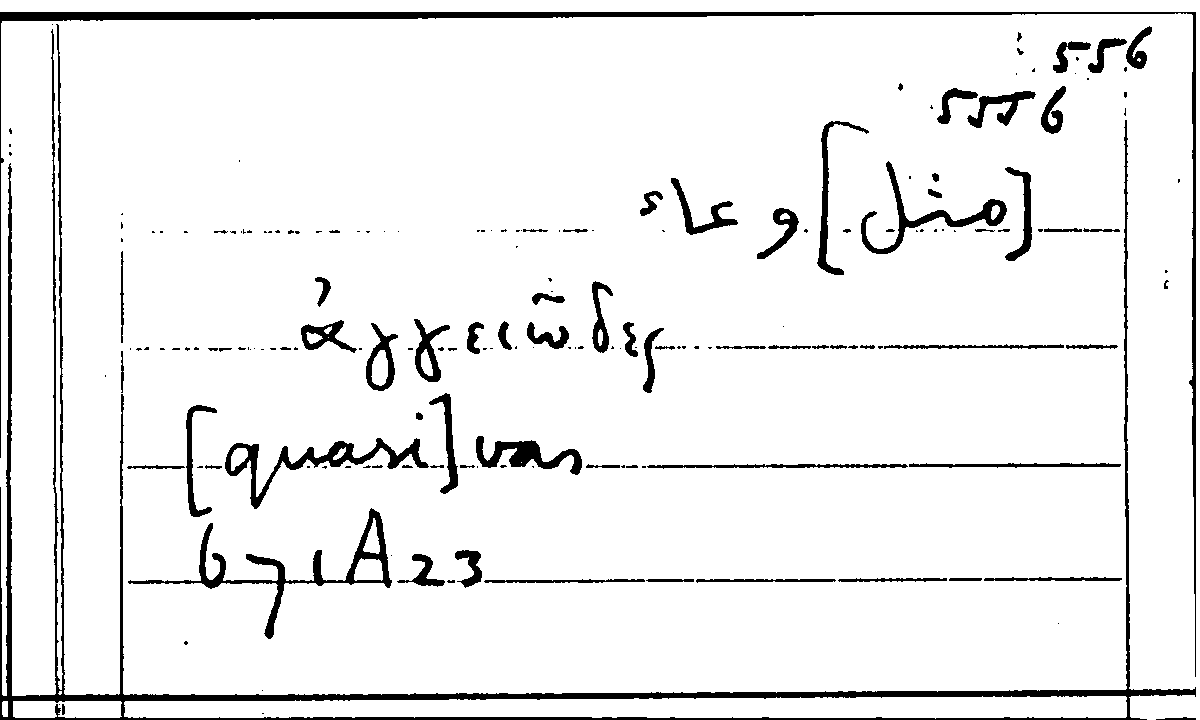 556
5556
[مثل] وعاء
ἀγγειῶδες
[quasi] vas
671A23